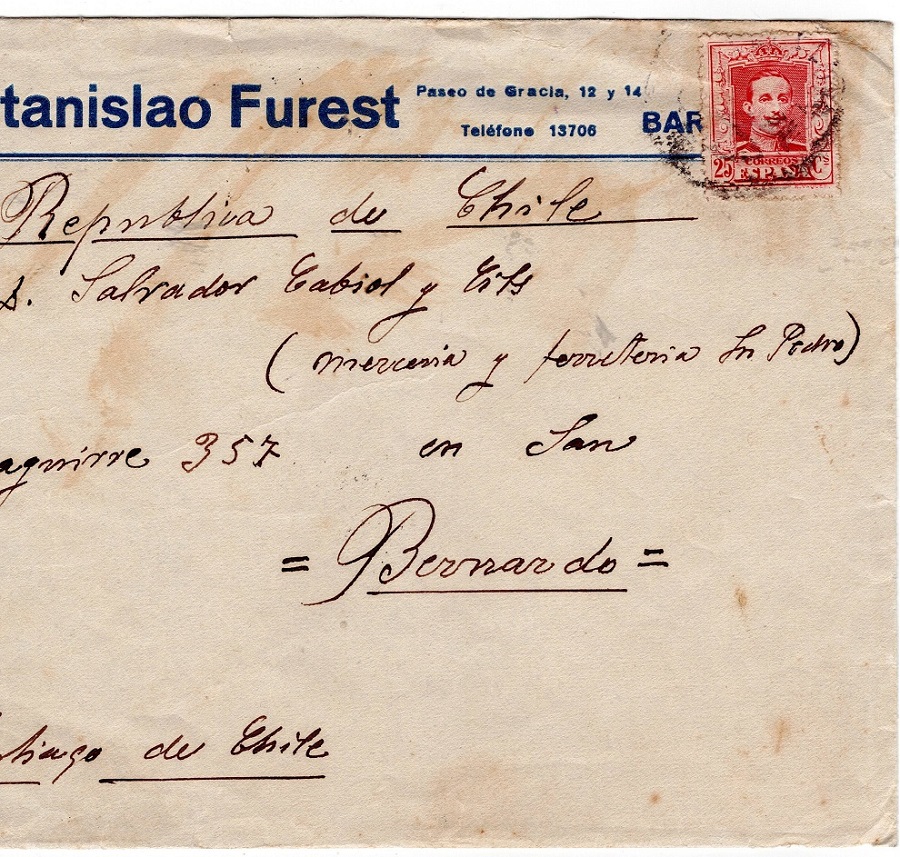 tanislao Furest
Paseo de Gracia, 12 y 14
Teléfono 13706
BAR
CORREOS
25 ESPAÑA C
Republica de Chile
S. Salvador Cabiol y Cils
(merceria y ferreteria Sn Pedro)
aguirre 357 en San
= Bernardo =
tiago de Chile